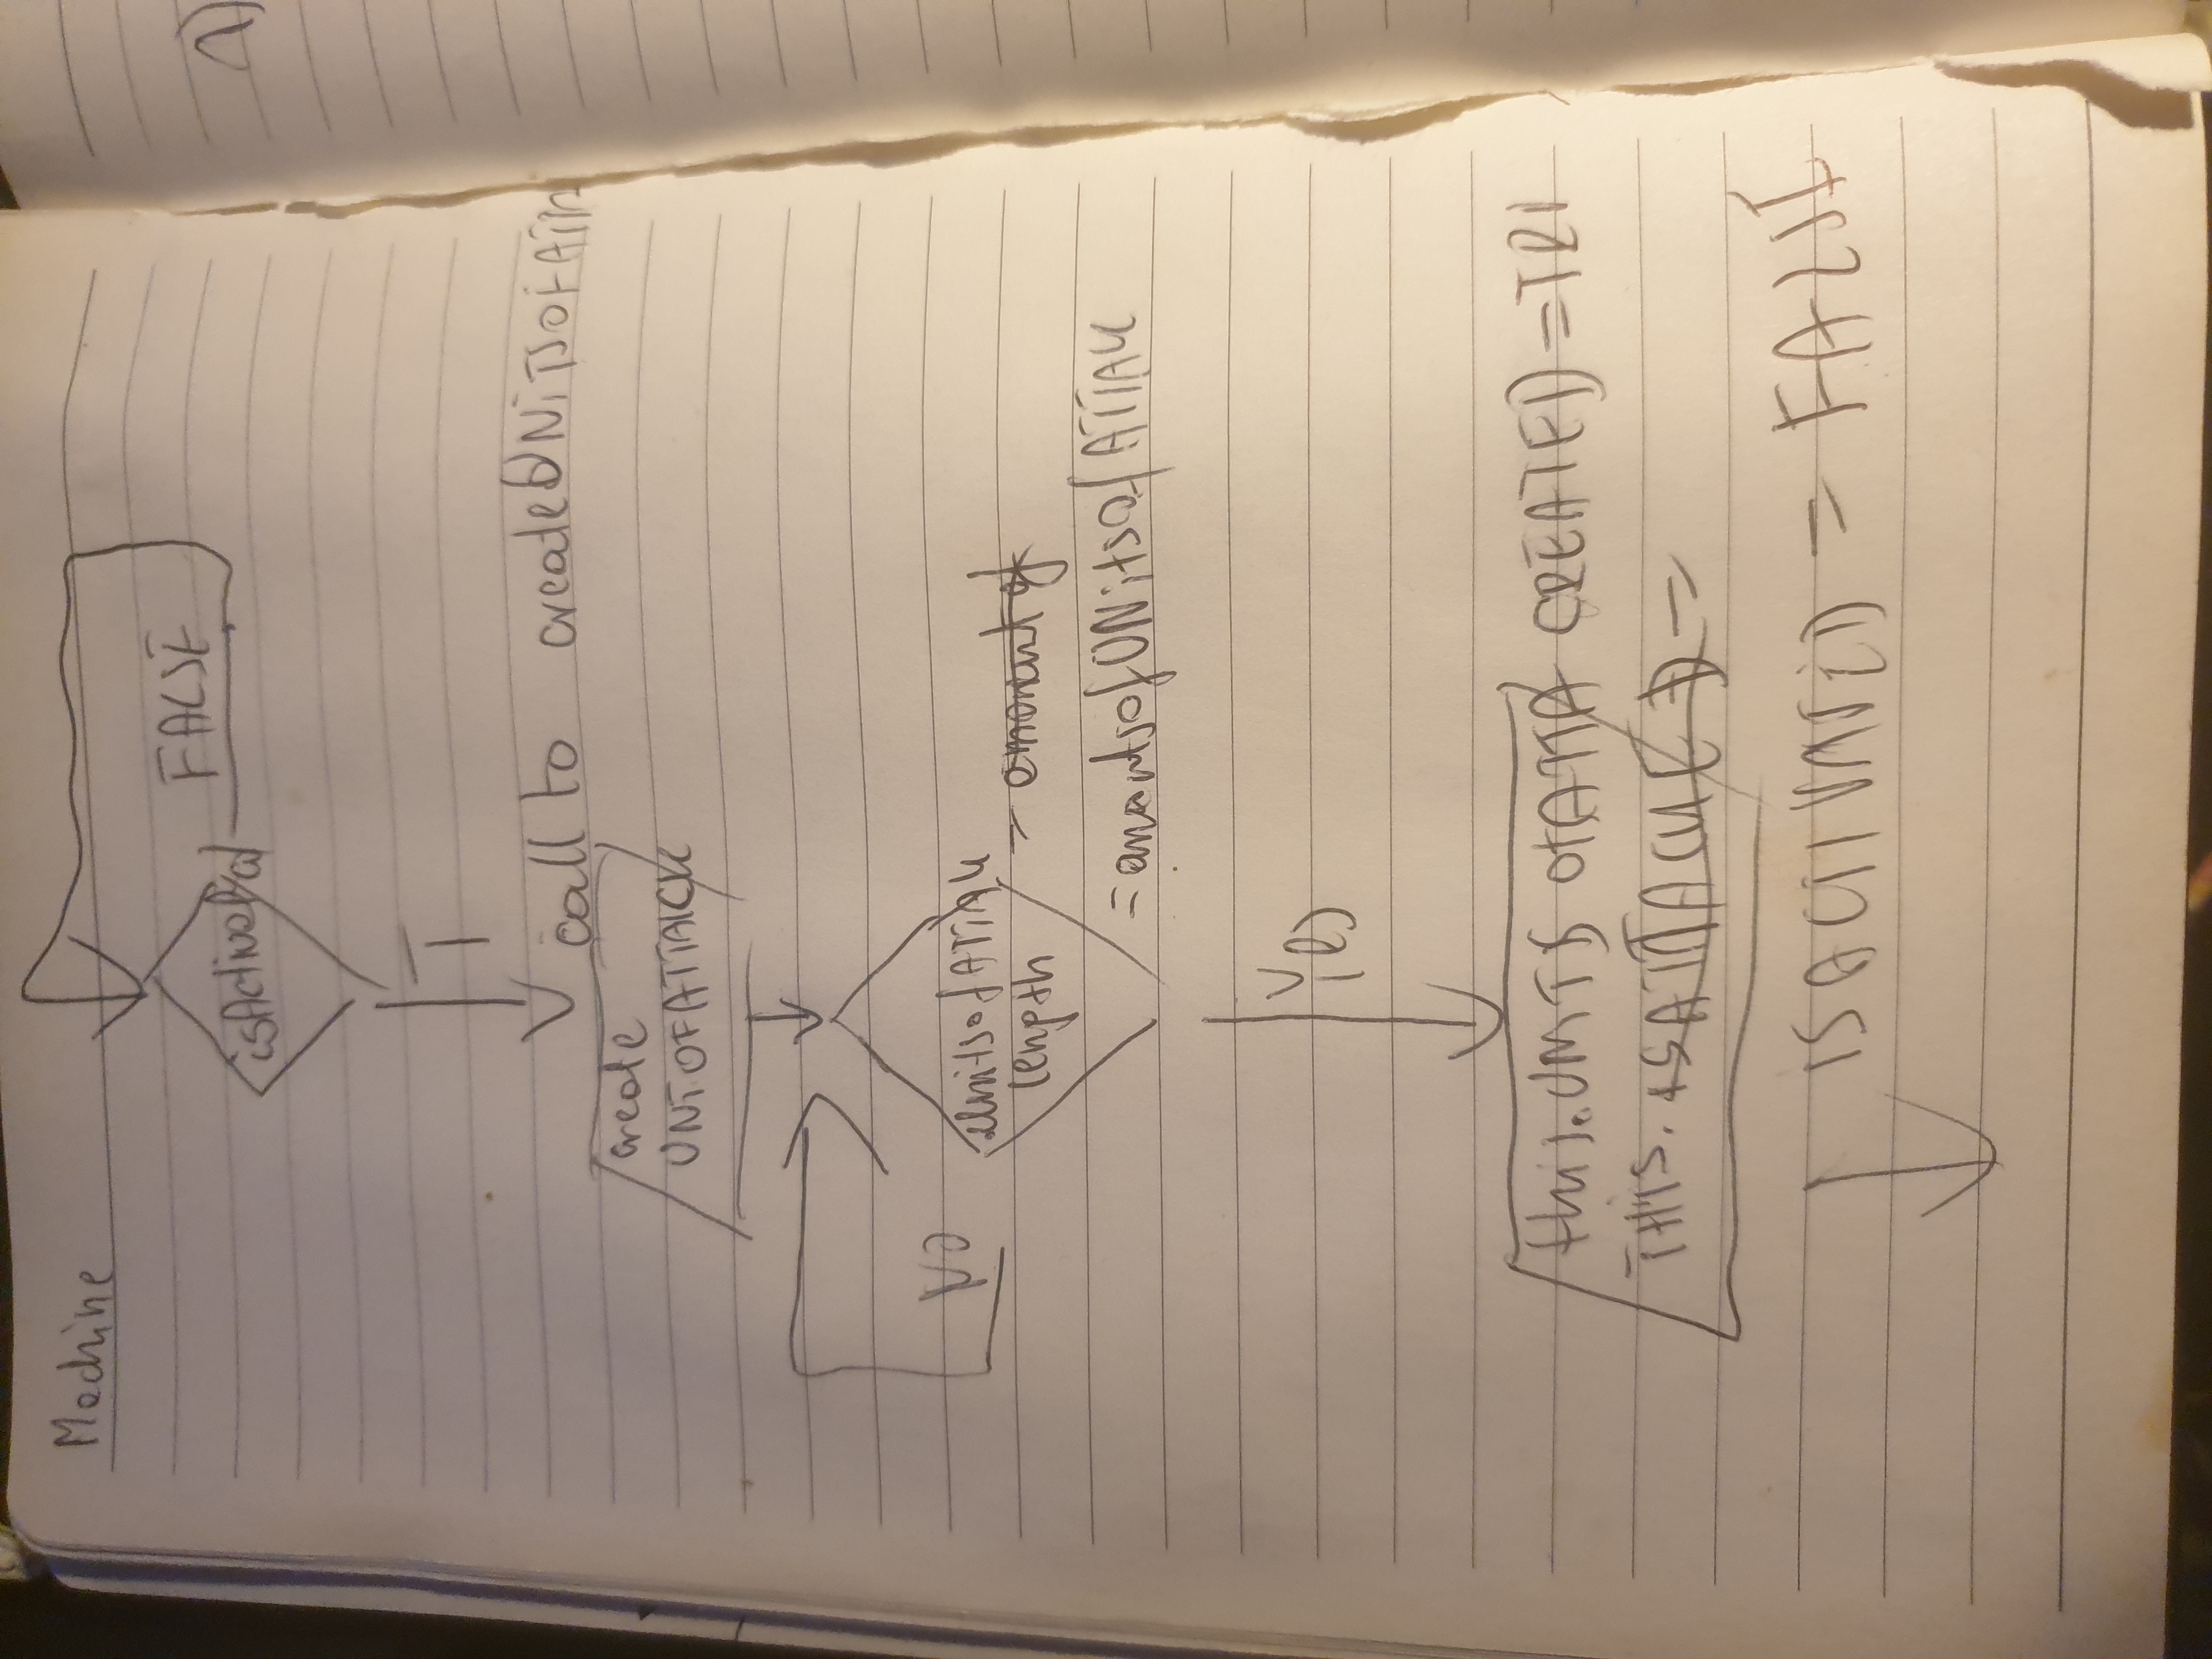 Machine
FALSE
isActivated
T
call to createUNiTSOFATTA
create
UNiTOFATTACK
NO
UnitsofATTAK
length
= amount of
= amountsofUNitsOfATTAK
Yes
this.UNITS OfATTA CREATED = TRU
THIS. ISATTACKED =
ISACTIVATED = FALSE
1)